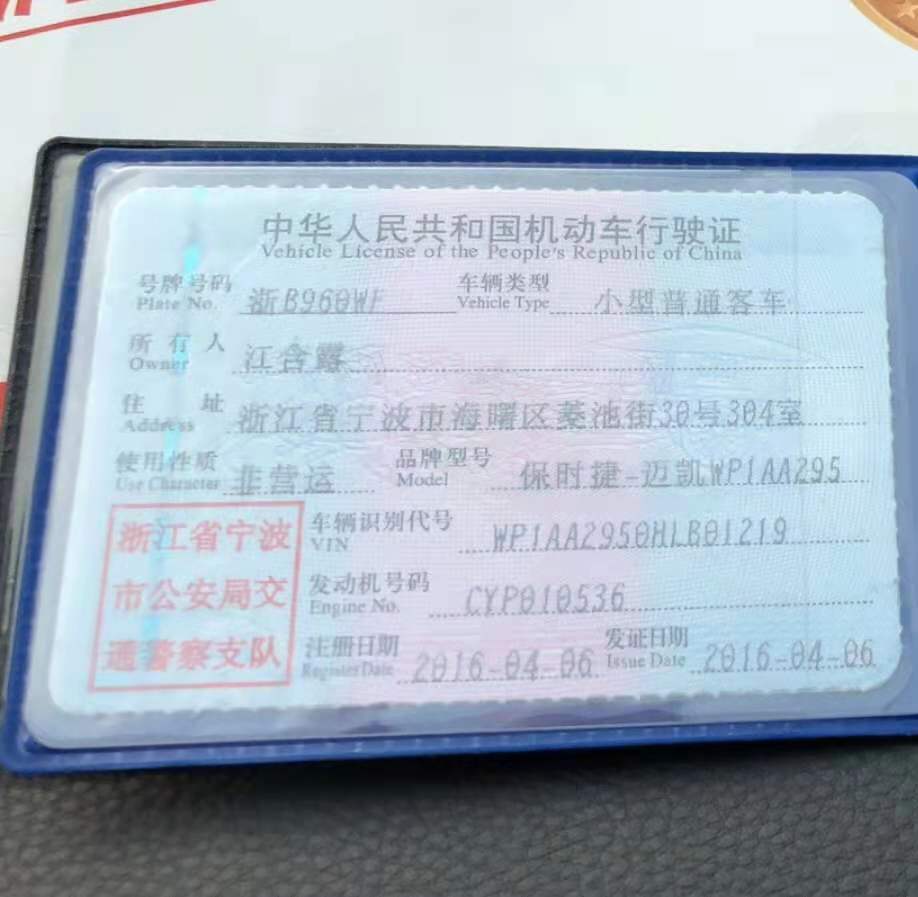 中华人民共和国机动车行驶证
Vehicle License of the People's Republic of China
号牌号码 浙B960WF 车辆类型 小型普通客车
Plate No. Vehicle Type
所有人 江含露
Owner
住址 浙江省宁波市海曙区菱池街30号304室
Address
使用性质 非营运 品牌型号 保时捷-迈凯WP1AA295
Use Character Model
浙江省宁波 车辆识别代号 WP1AA2950HLB01219
VIN
市公安局交 发动机号码 CYP010536
Engine No.
通警察支队 注册日期 2016-04-06 发证日期 2016-04-06
Register Date Issue Date